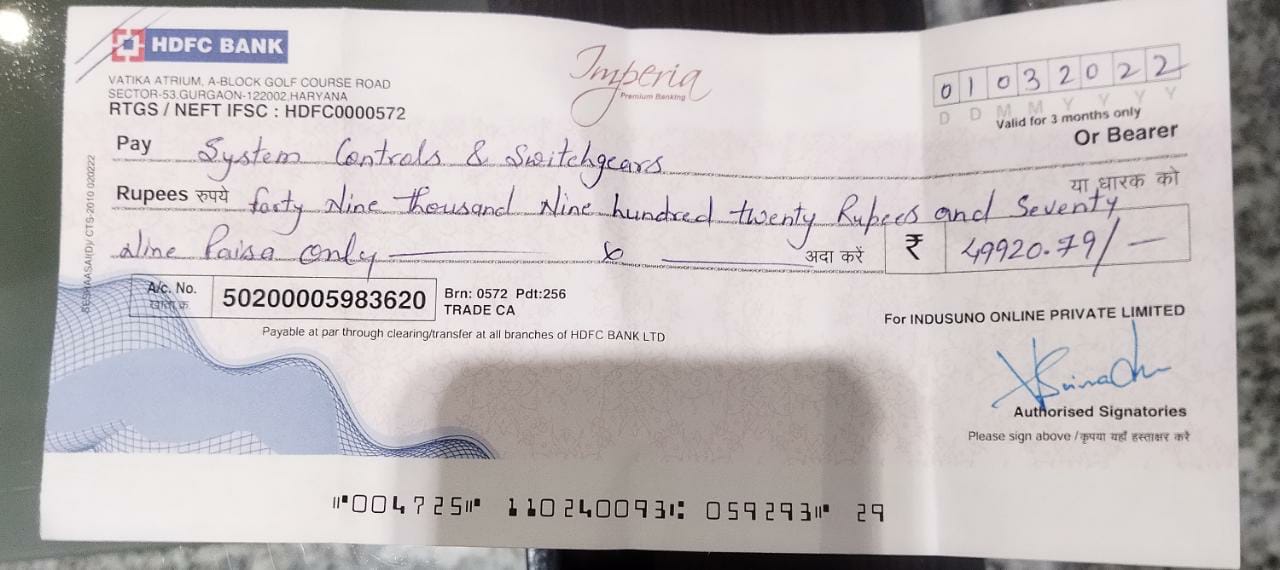 HDFC BANK
Imperia
Premium Banking
VATIKA ATRIUM, A-BLOCK GOLF COURSE ROAD
SECTOR-53,GURGAON-122002,HARYANA
RTGS / NEFT IFSC : HDFC0000572
01032022
D D M M Y Y Y Y
Valid for 3 months only
Pay System Controls & Switchgears
Or Bearer
या धारक को
Rupees रुपये forty Nine thousand Nine hundred twenty Rupees and Seventy
Nine Paisa only
अदा करें ₹ 49920.79/-
A/c. No.
खाता क्र.
50200005983620
Brn: 0572 Pdt:256
TRADE CA
Payable at par through clearing/transfer at all branches of HDFC BANK LTD
For INDUSUNO ONLINE PRIVATE LIMITED
Authorised Signatories
Please sign above / कृपया यहाँ हस्ताक्षर करें
CTS-2010 020222
⑈004725⑈ 110240093⑆ 059293⑈ 29